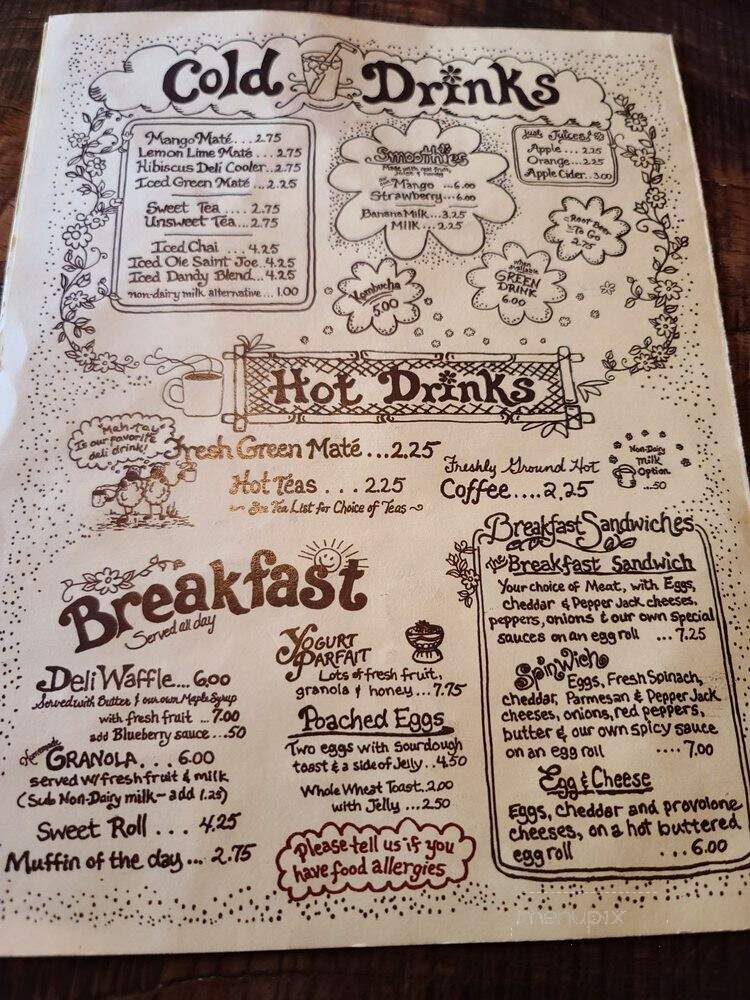 Cold Drinks
Mango Maté . . . 2.75
Lemon Lime Maté . . . 2.75
Hibiscus Deli Cooler . . 2.75
Iced Green Maté ... 2.25
Sweet Tea . . . . 2.75
Unsweet Tea ... 2.75
Iced Chai . . . 4.25
Iced Ole Saint Joe . . 4.25
Iced Dandy Blend ... 4.25
non-dairy milk alternative ... 1.00
Smoothies
Made with real fruit,
juice & honey
Mango ... 6.00
Strawberry ... 6.00
Banana Milk ... 3.25
Milk ... 2.25
Just Juices!
Apple ... 2.25
Orange .... 2.25
Apple Cider . 3.00
Root Beer
To Go
2.75
Kombucha
5.00
when available
GREEN
DRINK
6.00
Hot Drinks
"Mah-Tay"
Is our favorite
deli drink!
Fresh Green Maté ... 2.25
Hot Teas . . . 2.25
~ See Tea List for Choice of Teas ~
Freshly Ground Hot
Coffee .... 2.25
Non-Dairy
Milk
Option
... .50
Breakfast
Served all day
Deli Waffle ... 6.00
Served with Butter & our own Maple Syrup
with fresh fruit ... 7.00
add Blueberry sauce ... .50
Homemade
GRANOLA . . . 6.00
served w/ fresh fruit & milk
(Sub Non-Dairy milk - add 1.25)
Sweet Roll . . . 4.25
Muffin of the day ... 2.75
YOGURT
PARFAIT
Lots of fresh fruit,
granola & honey ... 7.75
Poached Eggs
Two eggs with Sourdough
toast & a side of Jelly . . 4.50
Whole Wheat Toast . 2.00
with Jelly ... 2.50
Please tell us if you
have food allergies
Breakfast Sandwiches
The Breakfast Sandwich
Your choice of Meat, with Eggs,
cheddar & Pepper Jack cheeses,
peppers, onions & our own special
sauces on an egg roll ... 7.25
Spinwich
Eggs, Fresh Spinach,
cheddar, Parmesan & Pepper Jack
cheeses, onions, red peppers,
butter & our own spicy sauce
on an egg roll .... 7.00
Egg & Cheese
Eggs, cheddar and provolone
cheeses, on a hot buttered
egg roll ... 6.00
menupix